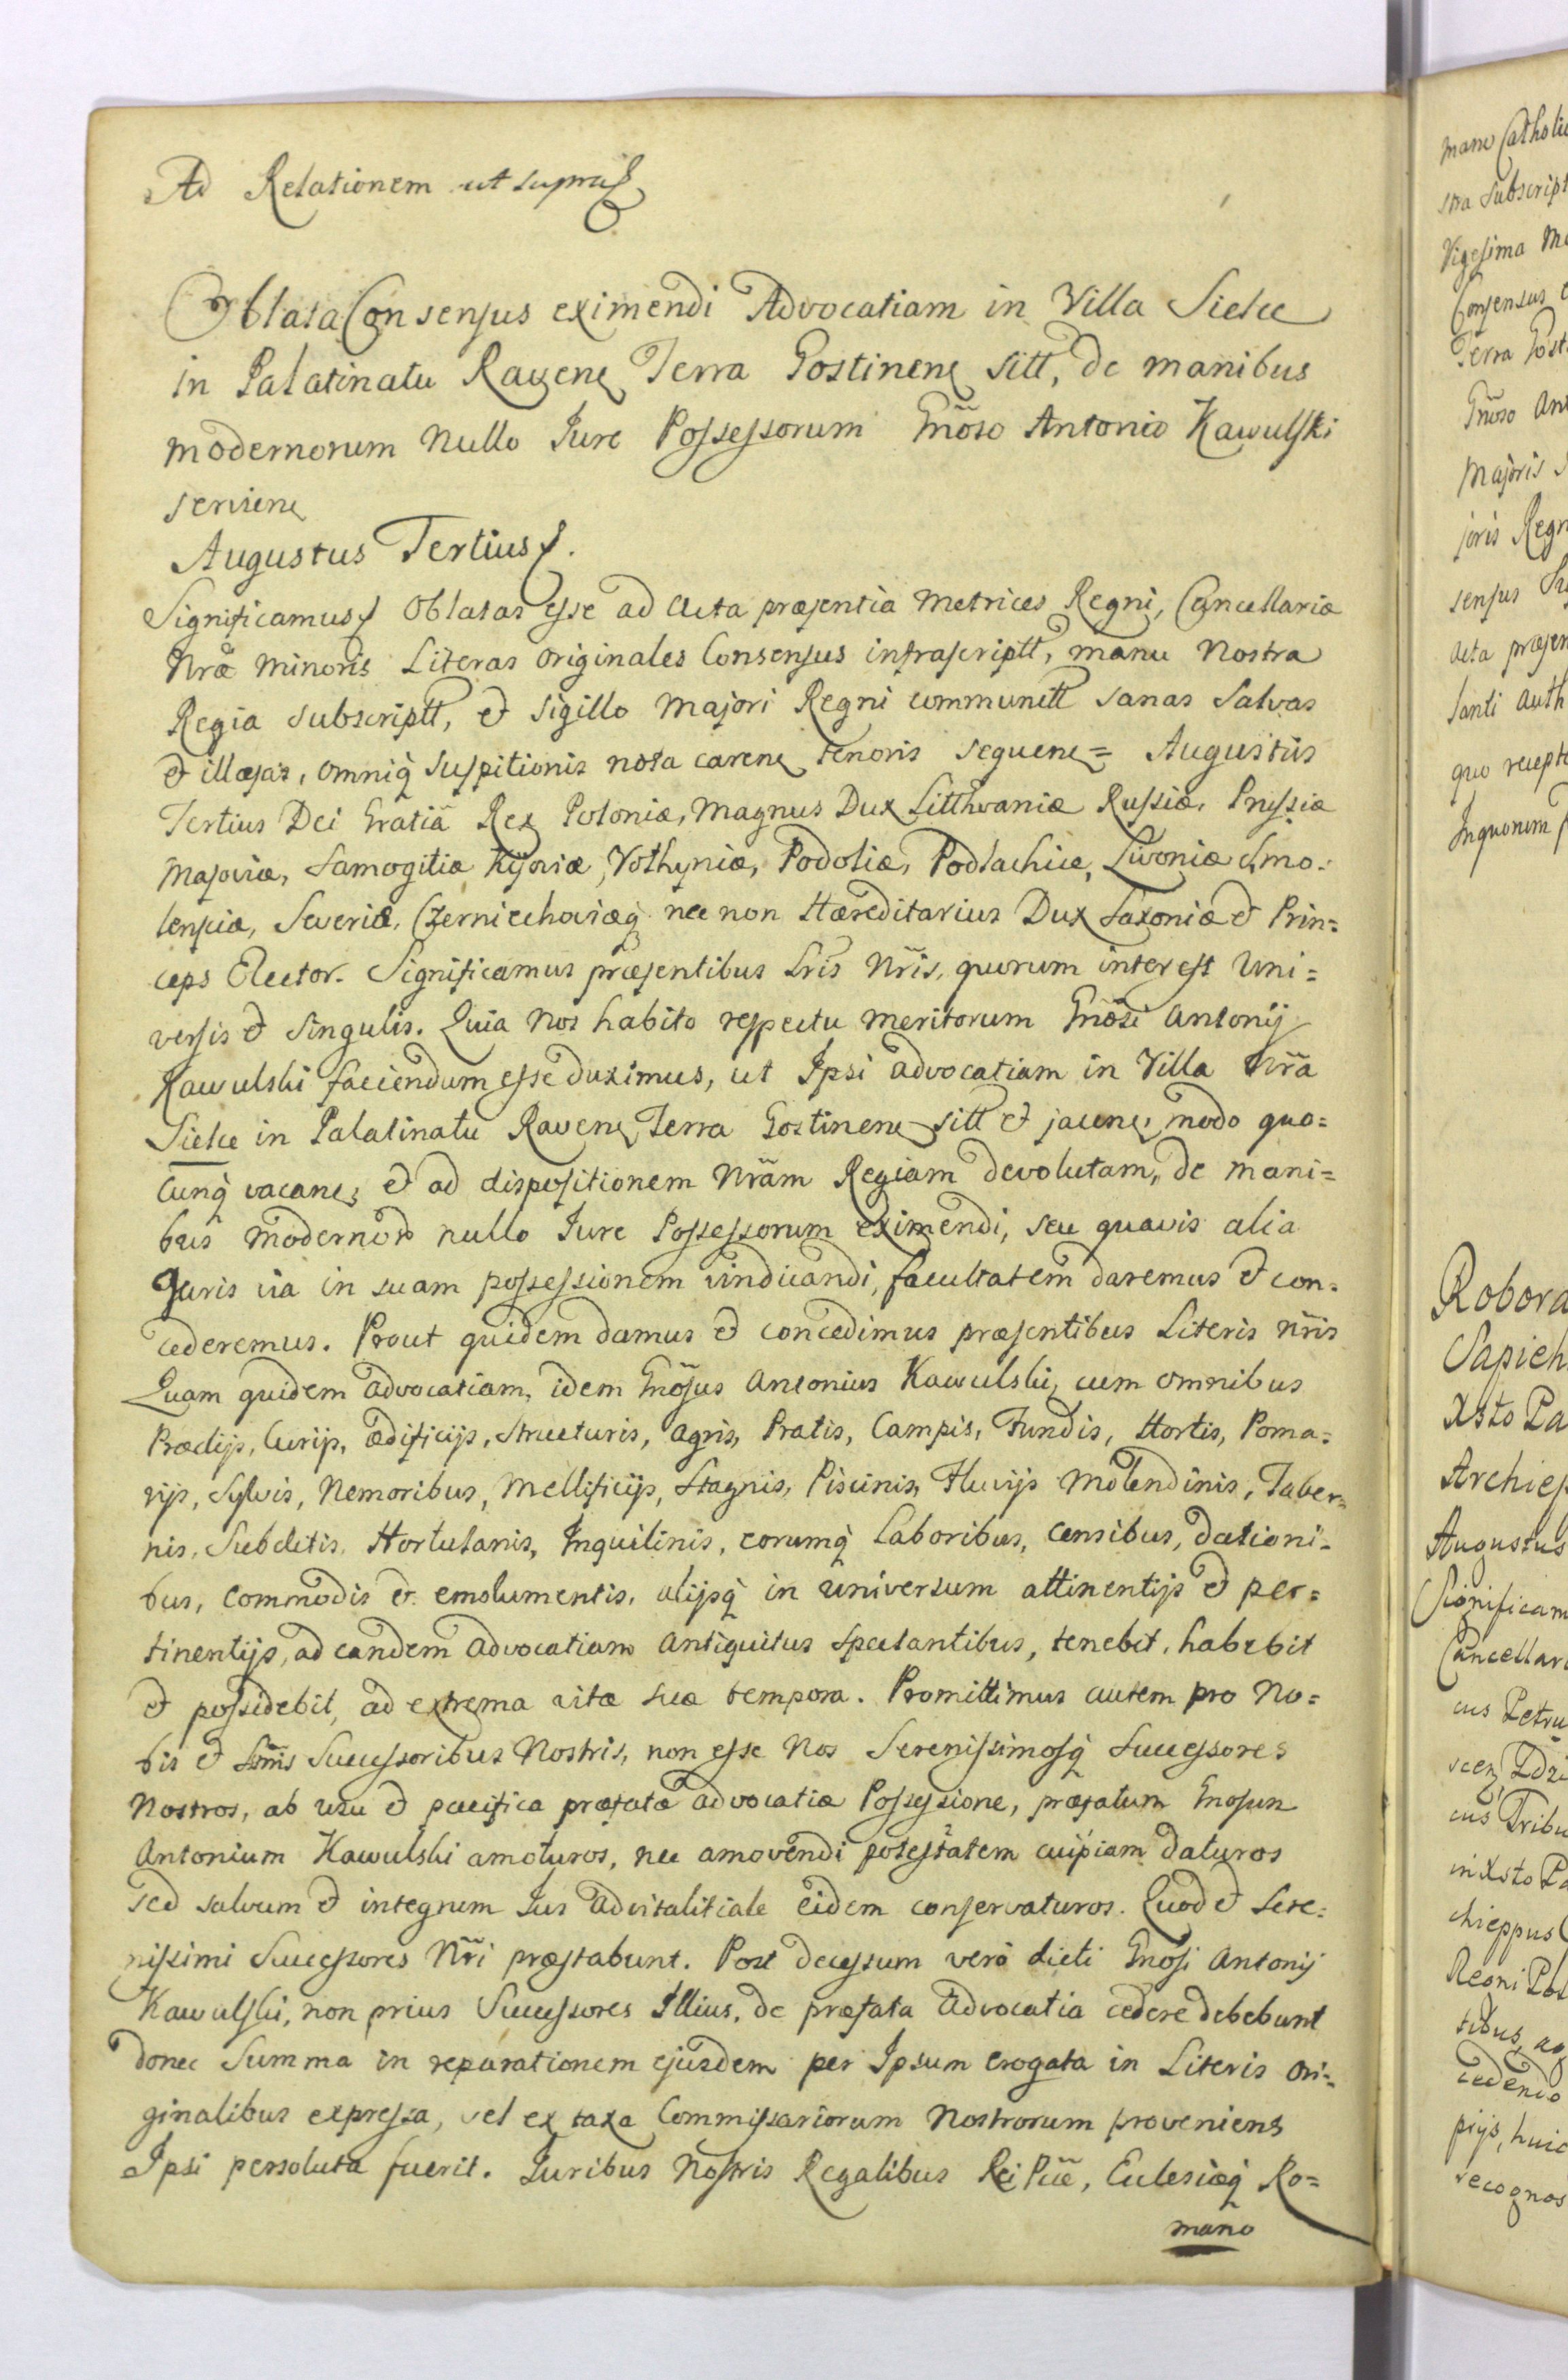 Ad Relationem ut supra
Oblata Consensus eximendi Advocatiam in Villa Sielce
in Palatinatu Ravenẽ Terra Gostinenẽ sitt, de manibus
modernorum nullo Jure Possessorum Gñoso Antonio Kawulski
servienẽ
Augustus Tertius
Significamus Oblatas esse ad Acta præsentia Metrices Regni, Cancellariæ
Nræ Minoris Literas Originales Consensus infrascriptt, manu Nostra
Regia subscriptt, et Sigillo Majori Regni communitt sanas Salvas
et illæsas, omniq̃ suspitionis nota carenẽ tenoris sequenẽ = Augustus
Tertius Dei Gratiã Rex Poloniæ, Magnus Dux Litthvaniæ Russiæ, Prussiæ
Masoviæ, Samogitiæ Kijoviæ, Volhyniæ, Podoliæ, Podlachiæ, Livoniæ Smo:
lensciæ, Severiæ, Czerniechoviæq̃ nec non Hæreditarius Dux Saxoniæ et Prin=
ceps Elector. Significamus præsentibus Lris Nris, quorum interest Uni=
versis et Singulis. Quia Nos habito respectu meritorum Gñosi Antonij
Kawulski faciendum esse duximus, ut Ipsi advocatiam in Villa Nrã
Sielce in Palatinatu Ravenẽ Terra Gostinenẽ sitt et jacenẽ, modo quo=
cunq̃ vacanẽ, et ad dispositionem Nrãm Regiam devolutam, de mani=
bus modernor nullo Jure Possessorum eximendi, seu quavis alia
Juris via in suam possessionem vindicandi, facultatem daremus et con=
cederemus. Prout quidem damus et concedimus præsentibus Literis Nris
Quam quidem advocatiam, idem Gñosus Antonius Kawulski, cum omnibus
Prædijs, Curijs, ædificijs, structuris, agris, Pratis, Campis, Fundis, Hortis, Poma=
rijs, Sylvis, Nemoribus, Mellificijs, Stagnis, Piscinis, Fluvijs Molendinis, Taber=
nis, Subditis, Hortulanis, Inquilinis, eorumq̃ Laboribus, Censibus, dationi=
bus, Commodis et emolumentis, alijsq̃ in universum attinentijs et per=
tinentijs, ad eandem advocatiam antiquitus spectantibus, tenebit, habebit
et possidebit, ad extrema vitæ suæ tempora. Promittimus autem pro No=
bis et Smis Successoribus Nostris, non esse Nos Serenissimosq̃ Successores
Nostros, ab usu et pacifica præfatæ advocatiæ Possessione, præfatum Gnosum
Antonium Kawulski amoturos, nec amovendi potestatem cuipiam daturos
sed salvum et integrum Jus advitalitiale eidem conservaturos. Quod et Sere=
nissimi Successores Nri præstabunt. Post decessum verò dicti Gnosi Antonij
Kawulski, non prius Successores Illius, de præfata advocatia cedere debebunt
donec Summa in reparationem ejusdem per Ipsum erogata in Literis Ori=
ginalibus expressa, vel ex taxa Commissariorum Nostrorum proveniens
Ipsi persoluta fuerit. Juribus Nostris Regalibus Rei Pcæ, Ecclesiæq̃ Ro=
mano
mano
stra subscript
Vigesima
Consensus
Terra Gost
Gñoso Ant
Majoris
joris Regn
sensus
Acta præsen
santi auth
quo recept
In quorum
Robora
Sapieh
Xsto Pa
Archiep
Augustus
Significam
Cancellari
cus Petru
cus Tribu
in Xsto Pa
chieppus
Regni Pol
tibus, ac
cedendo
pijs, huic
recognos